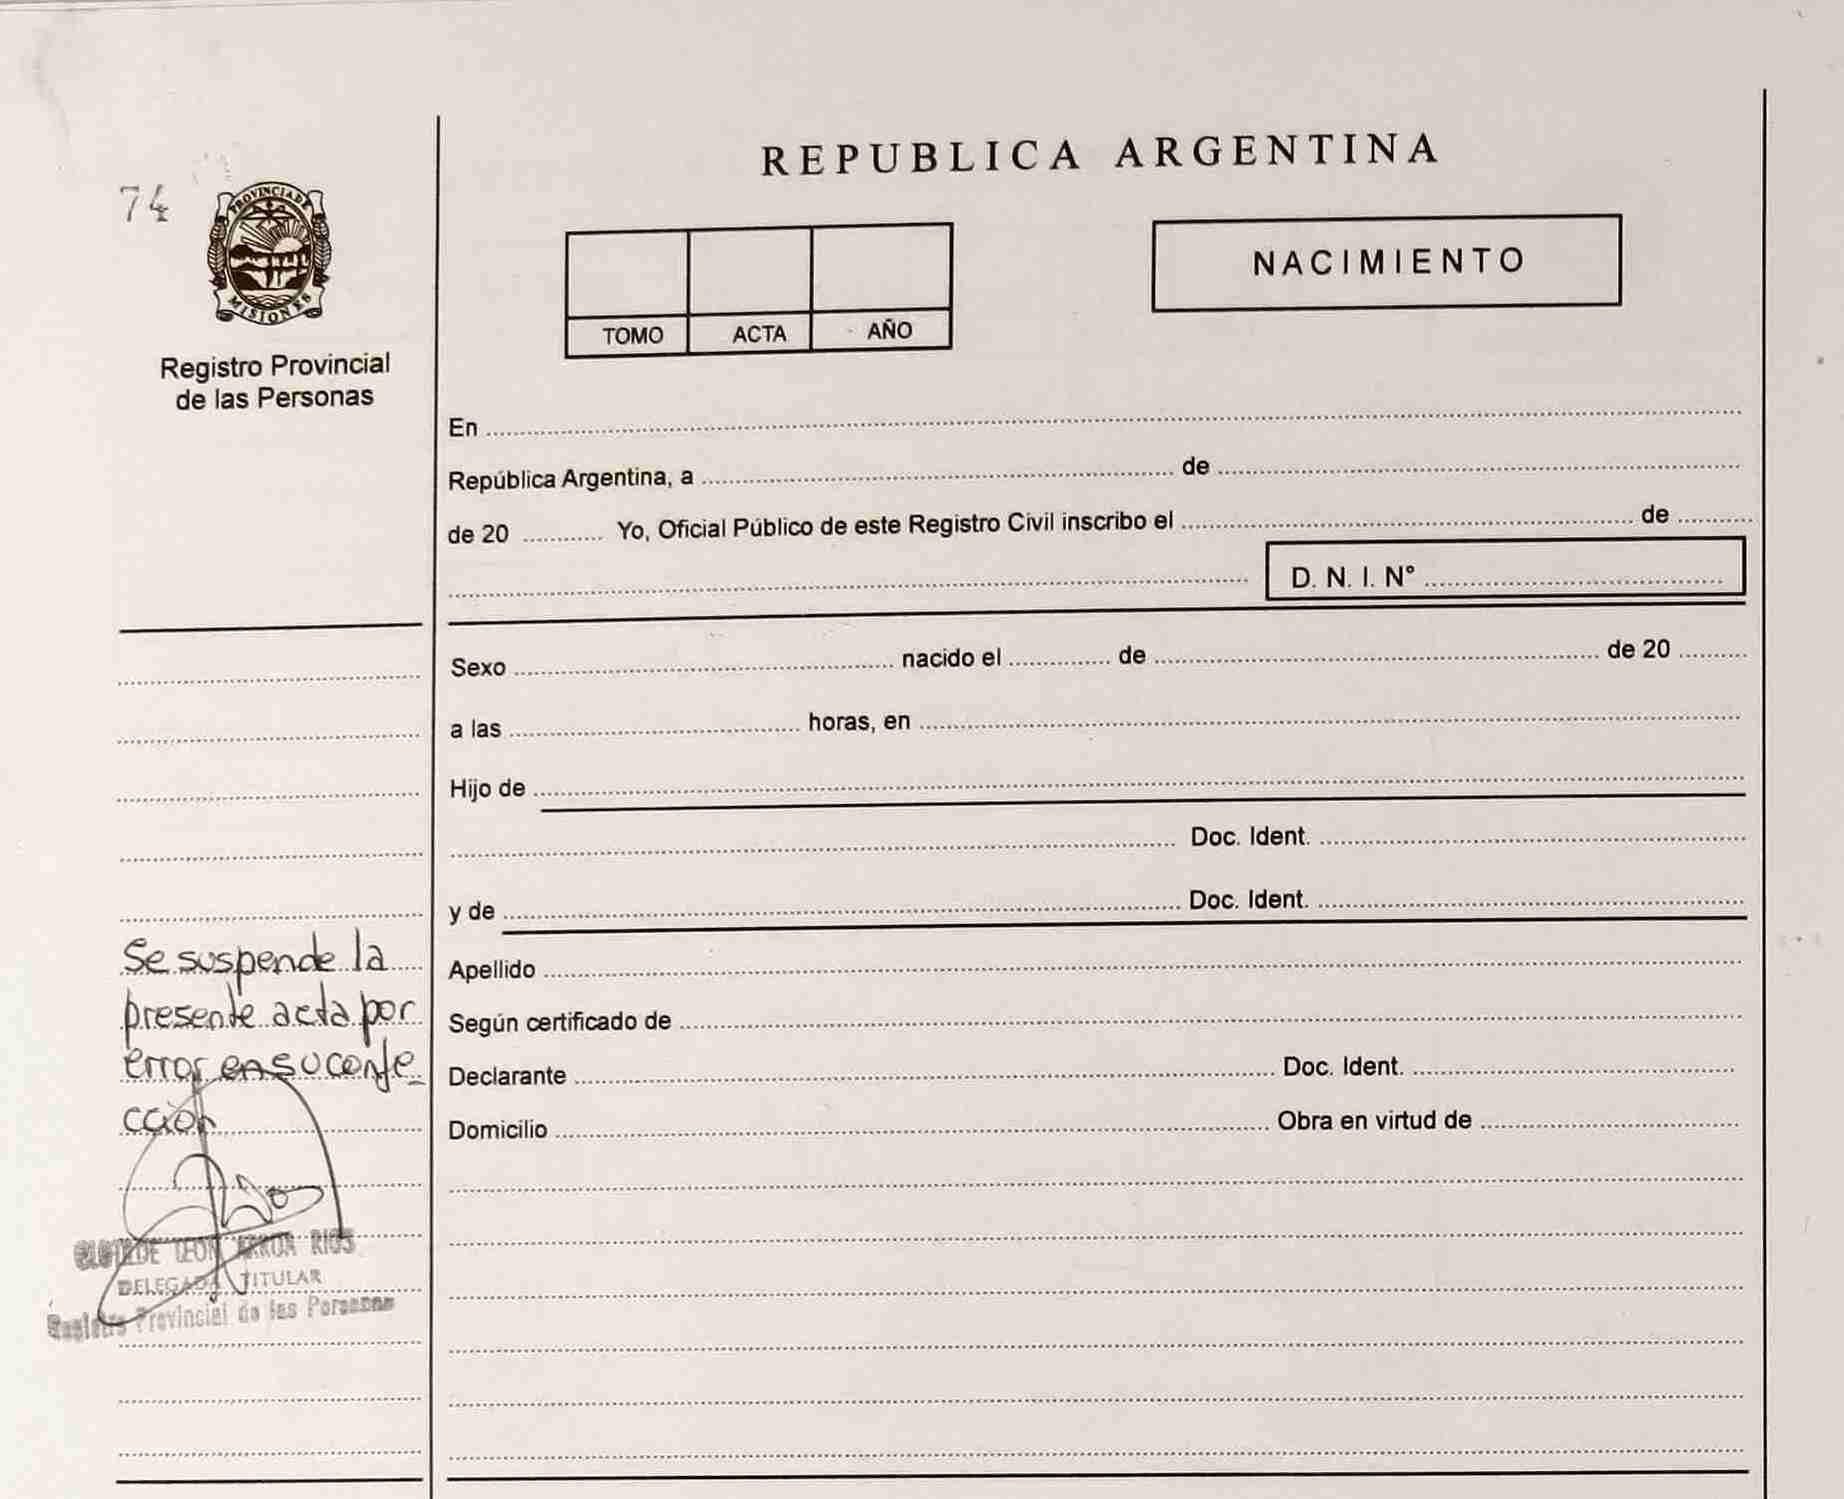 REPUBLICA ARGENTINA
74
PROVINCIA DE
MISIONES
Registro Provincial
de las Personas
TOMO ACTA AÑO
NACIMIENTO
En
República Argentina, a de
de 20 Yo, Oficial Público de este Registro Civil inscribo el de
D. N. I. N°
Sexo nacido el de de 20
a las horas, en
Hijo de
Doc. Ident.
y de Doc. Ident.
Apellido
Según certificado de
Declarante Doc. Ident.
Domicilio Obra en virtud de
Se suspende la
presente acta por
error en su confe-
cción
CLOTILDE LEON RIOS
DELEGADA TITULAR
Registro Provincial de las Personas